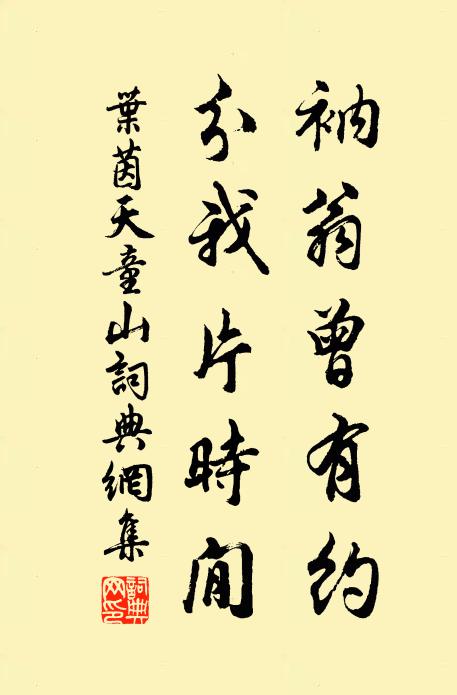 衲翁曾有約
分我片時閒
葉茵天童山詞典網集
詞典網印